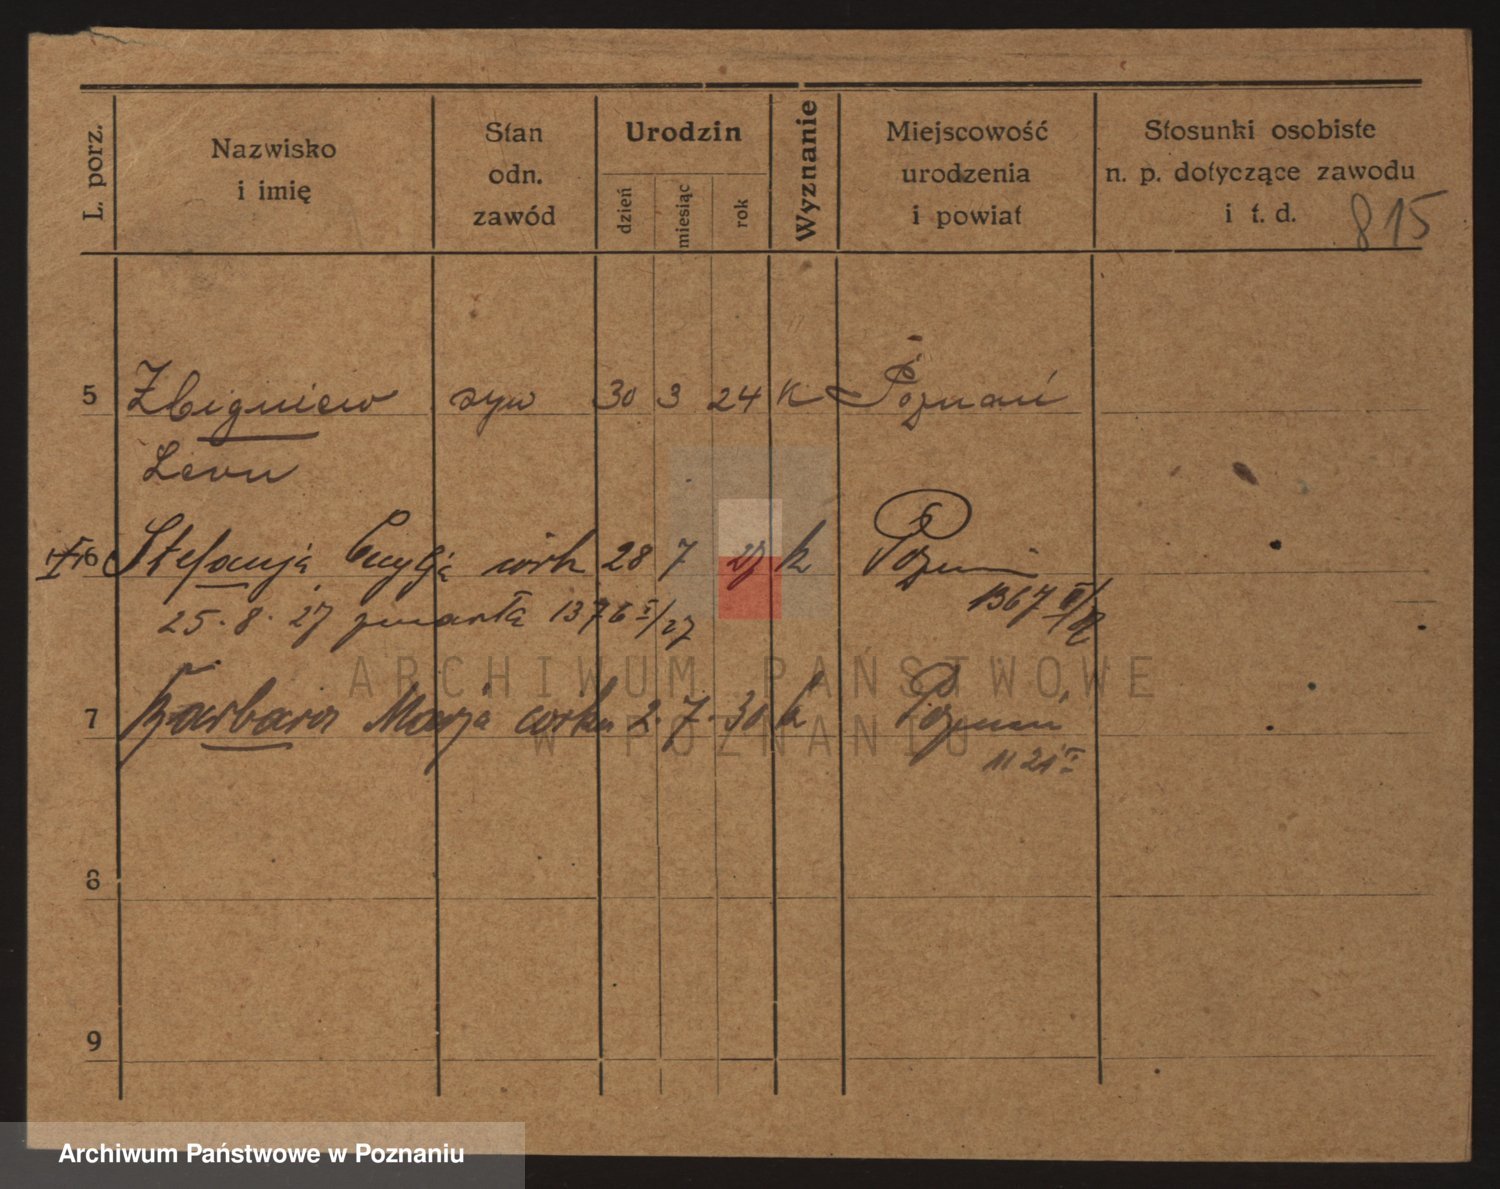 L. porz.
Nazwisko
i imię
Stan
odn.
zawód
Urodzin
dzień
miesiąc
rok
Wyznanie
Miejscowość
urodzenia
i powiat
Stosunki osobiste
n. p. dotyczące zawodu
i t. d.
815
5 Zbigniew syn 30 3 24 k Poznań
6 Stefanja 28 7 27 k
25. 8. 27 zmarła 1376 I/27
1367
ARCHIWUM PAŃSTWOWE
W POZNANIU
7 Barbara Marja córka 2. 7. 30 k Poznań
1121
8
9
Archiwum Państwowe w Poznaniu